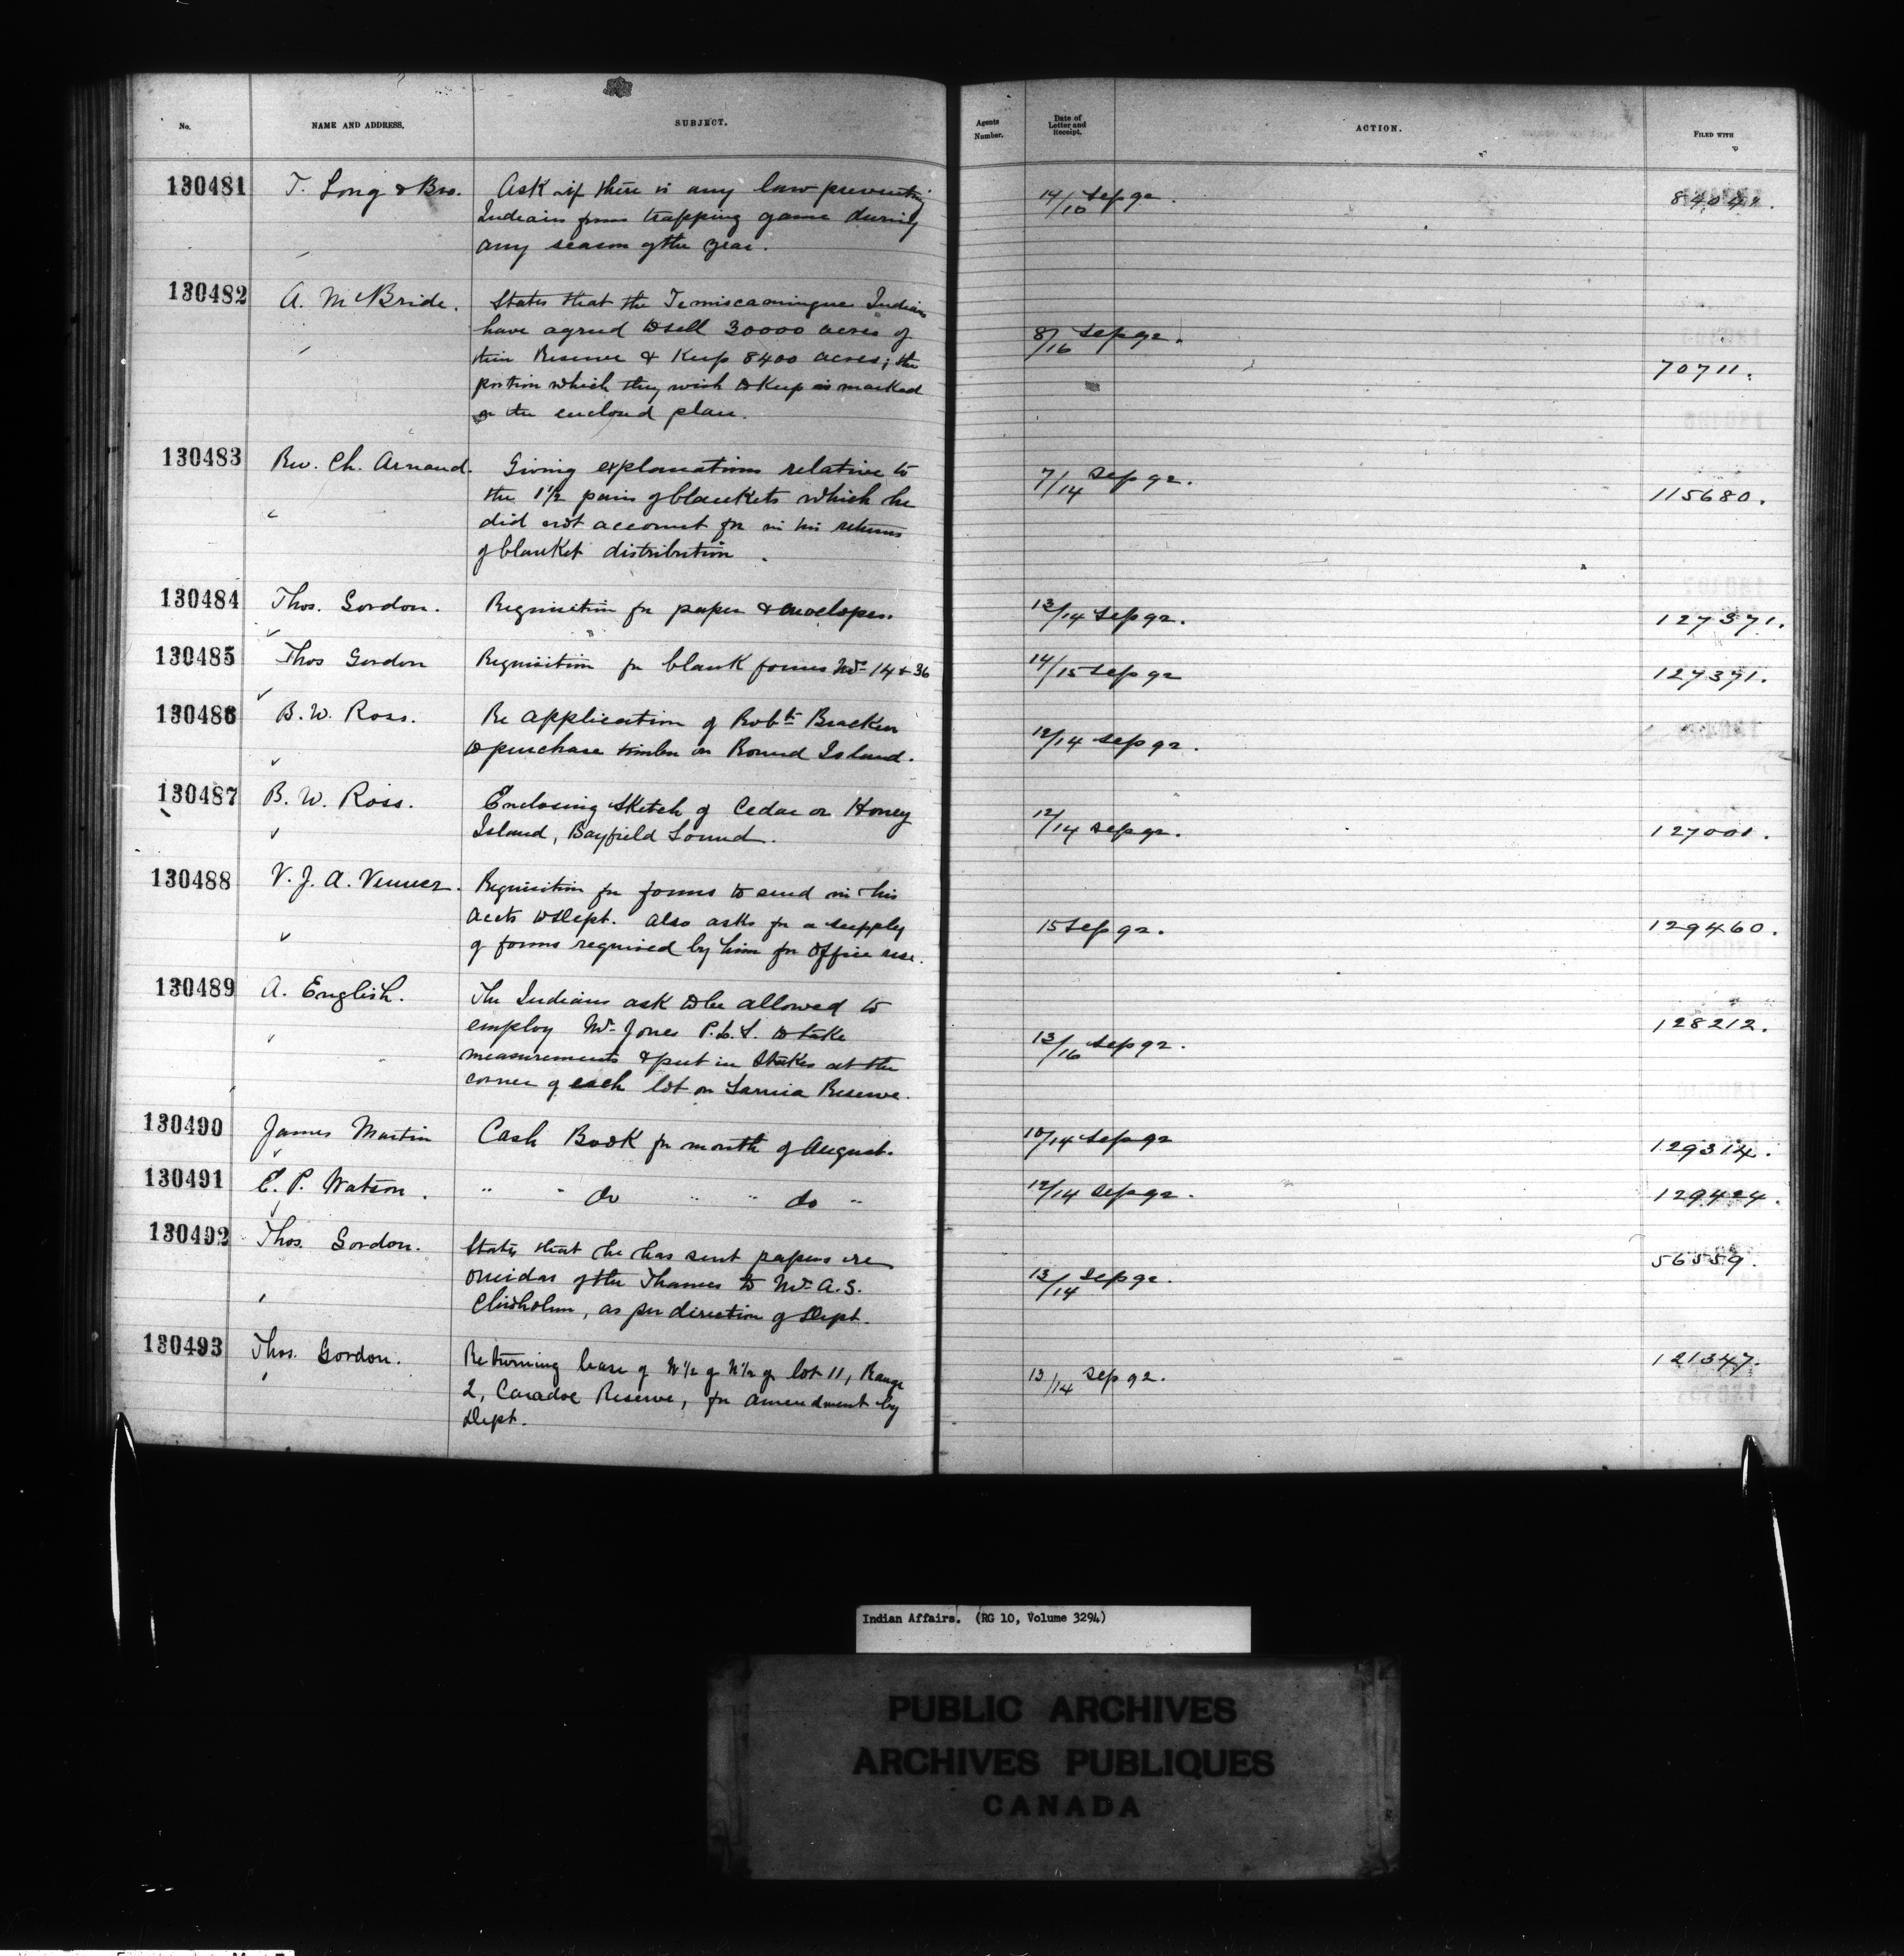 No. NAME AND ADDRESS. SUBJECT. Agents Number. Date of Letter and Receipt. ACTION. FILED WITH
130481 T. Long & Bro. Ask if there is any law preventing 14/10 Sep 92.
Indians from trapping game during
any season of the year.
130482 A. McBride. States that the Temiscamingue Indians 8/16 Sep 92. 70711.
have agreed to sell 30000 acres of
their Reserve & Keep 8400 acres; the
portion which they wish to Keep is marked
on the enclosed plan.
130483 Rev. Ch. Arnaud. Giving explanations relative to 7/14 Sep 92. 115680.
the 1 1/2 pairs of blankets which he
did not account for in his returns
of blanket distribution.
130484 Thos. Gordon. Requisition for paper & envelopes. 13/14 Sep 92. 127371.
130485 Thos Gordon Requisition for blank forms Nos 14 & 36 14/15 Sep 92 127371.
130486 B. W. Ross. Re application of Robt. Bracken 12/14 Sep 92.
to purchase timber on Round Island.
130487 B. W. Ross. Enclosing sketch of Cedar or Honey 12/14 Sep 92. 127001.
Island, Bayfield Sound.
130488 V. J. A. Venner. Requisition for forms to send in his 15 Sep 92. 129460.
accts to Dept. Also asks for a supply
of forms required by him for Office use.
130489 A. English. The Indians ask to be allowed to 13/16 Sep 92. 128212.
employ Mr. Jones P.L.S. to take
measurements & put in Stakes at the
corner of each lot on Sarnia Reserve.
130490 James Martin Cash Book for month of August. 10/14 Sep 92 129314.
130491 E. P. Watson. " " do " " do " 12/14 Sep 92. 129424.
130492 Thos. Gordon. States that he has sent papers re 13/14 Sep 92. 56559.
Oneidas of the Thames to Mr. A. S.
Chisholm, as per direction of Dept.
130493 Thos. Gordon. Returning lease of N 1/2 of lot 11, Range 13/14 Sep 92. 121347.
2, Caradoc Reserve, for amendment by
Dept.
Indian Affairs. (RG 10, Volume 3294)
PUBLIC ARCHIVES
ARCHIVES PUBLIQUES
CANADA